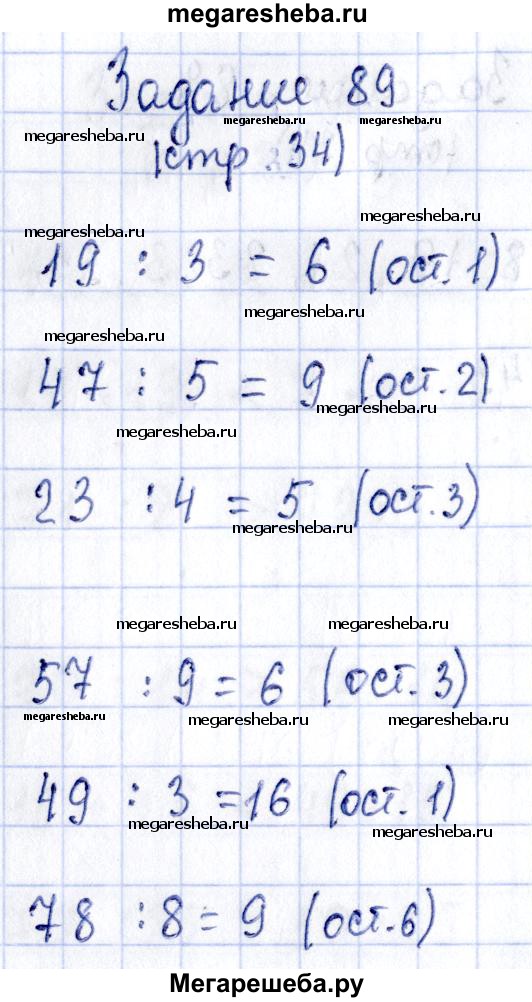 megaresheba.ru
Задание 89
megaresheba.ru megaresheba.ru megaresheba.ru
(стр. 34)
megaresheba.ru
megaresheba.ru
19 : 3 = 6 (ост. 1)
megaresheba.ru
megaresheba.ru
47 : 5 = 9 (ост. 2)
megaresheba.ru
megaresheba.ru
23 : 4 = 5 (ост. 3)
megaresheba.ru
megaresheba.ru megaresheba.ru
57 : 9 = 6 (ост. 3)
megaresheba.ru megaresheba.ru megaresheba.ru
49 : 3 = 16 (ост. 1)
megaresheba.ru megaresheba.ru
78 : 8 = 9 (ост. 6)
Мегарешеба.ру